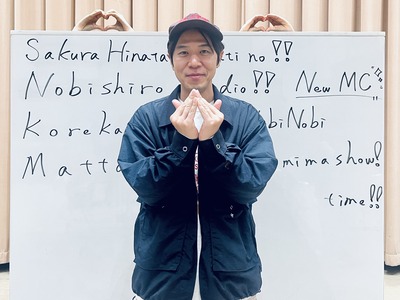 Sakura Hinata iti no!!
Nobishiro dio!! New MC
Koreka biNobi
Matta mimashow!
time!!